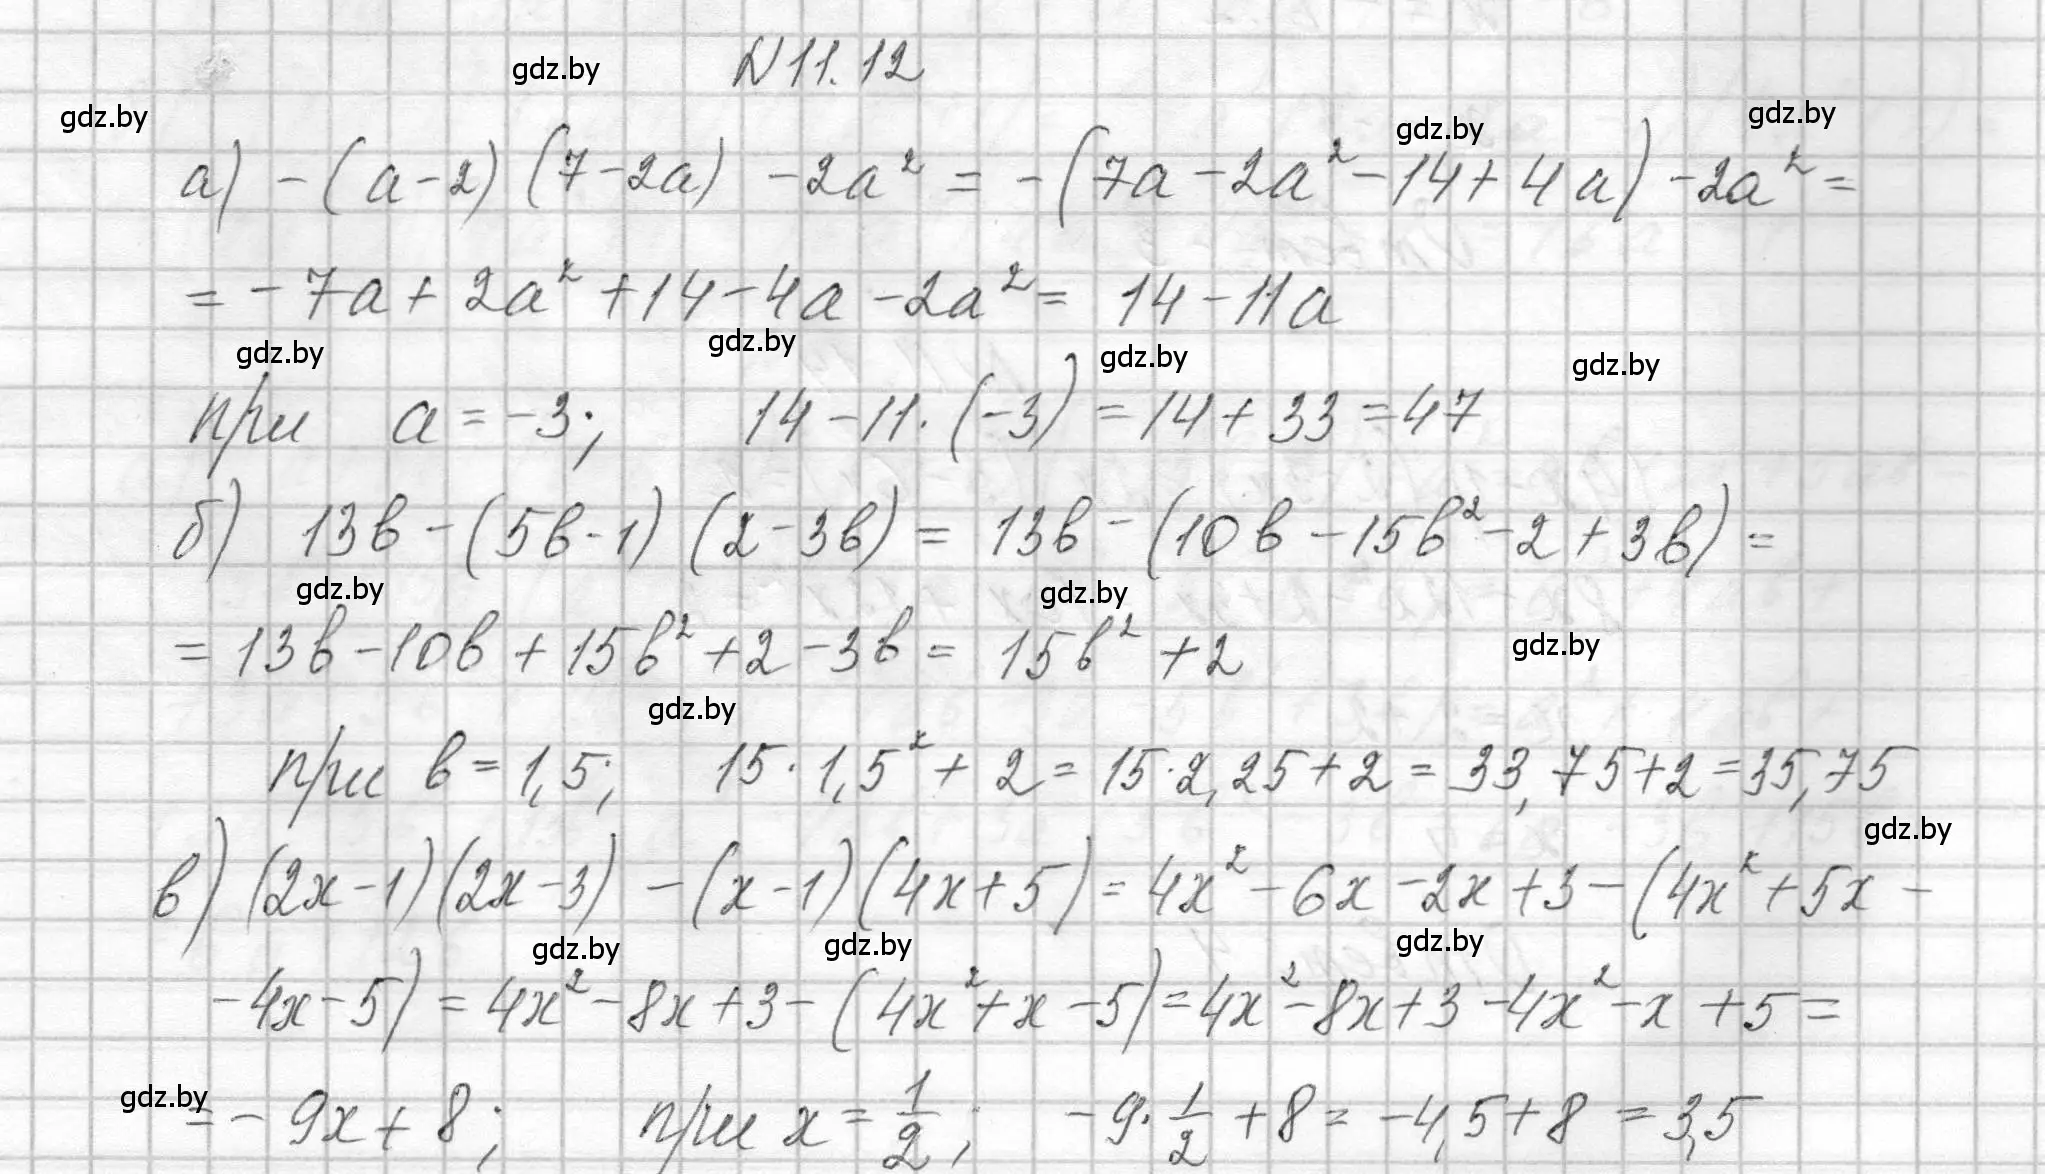 gdz.by
N 11.12
gdz.by gdz.by gdz.by
а) -(a-2)(7-2a) -2a² = -(7a-2a²-14+4a) -2a² =
= -7a+2a²+14-4a-2a² = 14-11a
gdz.by gdz.by gdz.by gdz.by
при a=-3; 14-11·(-3) = 14+33 = 47
б) 13b-(5b-1)(2-3b) = 13b-(10b-15b²-2+3b) =
gdz.by gdz.by
= 13b-10b+15b²+2-3b = 15b²+2
gdz.by
gdz.by
при b=1,5; 15·1,5²+2 = 15·2,25+2 = 33,75+2 = 35,75
gdz.by
в) (2x-1)(2x-3) -(x-1)(4x+5) = 4x²-6x-2x+3-(4x²+5x-
gdz.by gdz.by gdz.by
-4x-5) = 4x²-8x+3-(4x²+x-5) = 4x²-8x+3-4x²-x+5 =
gdz.by
= -9x+8; при x = 1/2; -9·1/2+8 = -4,5+8 = 3,5